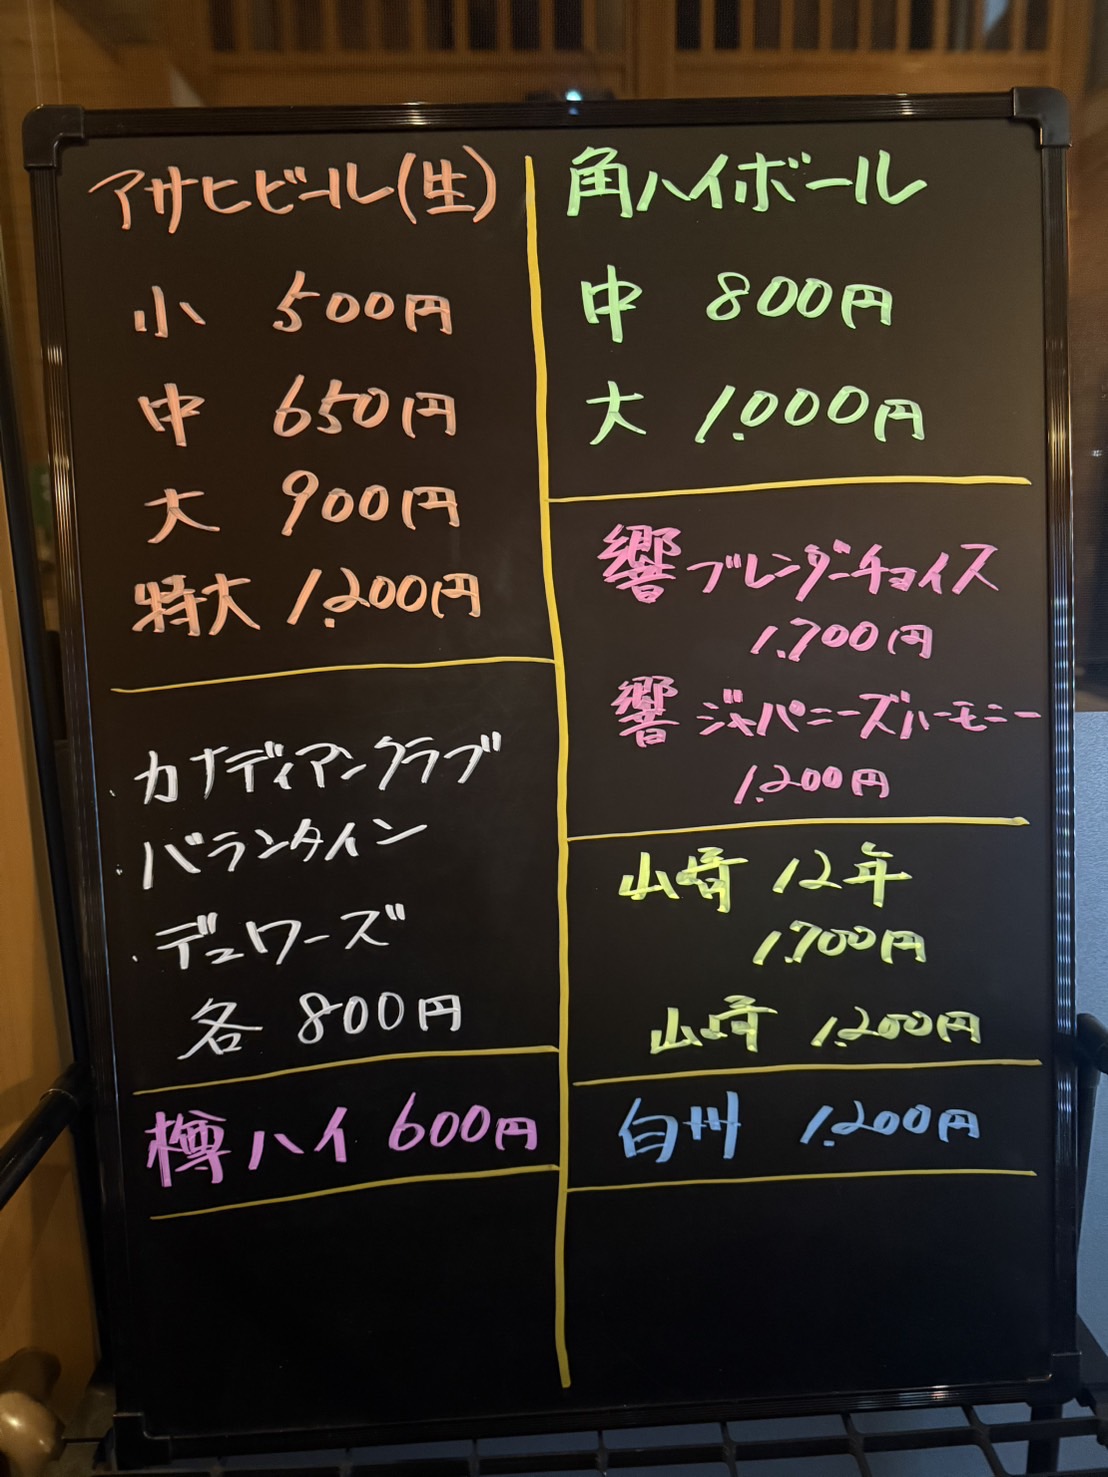 アサヒビール(生)
小 500円
中 650円
大 900円
特大 1,200円
・カナディアンクラブ
・バランタイン
・デュワーズ
各 800円
樽ハイ 600円
角ハイボール
中 800円
大 1,000円
響ブレンダーチョイス
1,700円
響ジャパニーズハーモニー
1,200円
山崎 12年
1,700円
山崎 1,200円
白州 1,200円